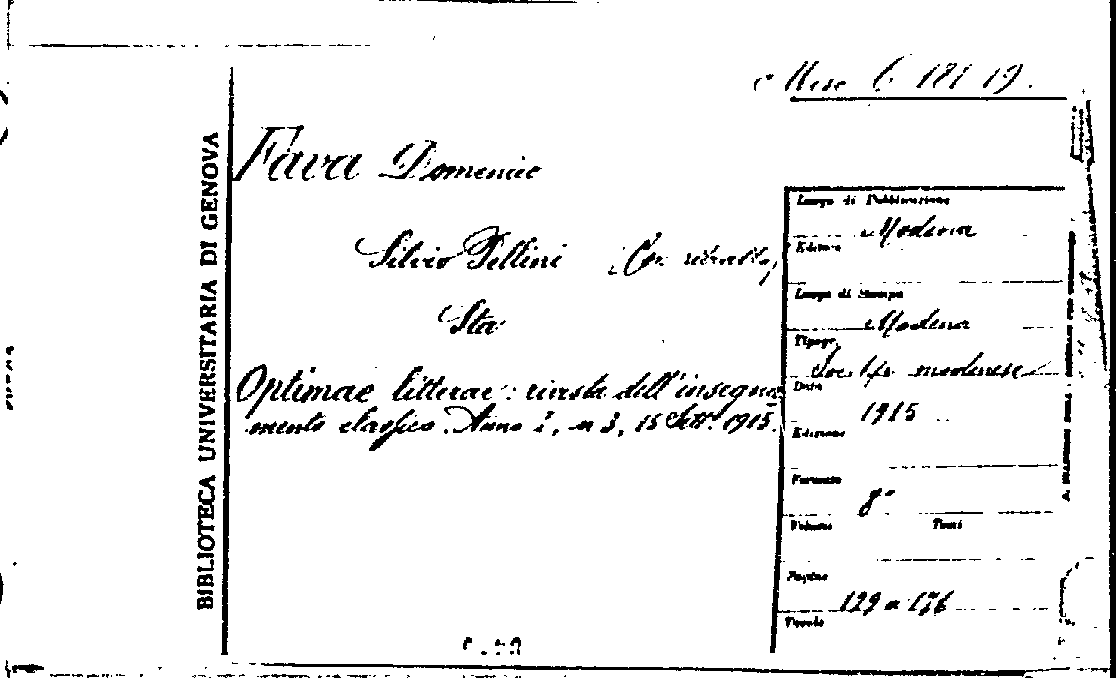 Misc. C. 181 19.
BIBLIOTECA UNIVERSITARIA DI GENOVA
Fava Domenico
Silvio Pellini (Con ritratto)
Sta
Optimae litterae: rivista dell'insegna
mento classico. Anno I, n 3, 15 Sett. 1915.
Luogo di Pubblicazione
Modena
Editore
Luogo di Stampa
Modena
Tipogr.
Soc. tip. modenese
Data
1915
Edizione
Formato
8°
Volume Tomi
Pagine
129 a 176
Tavole